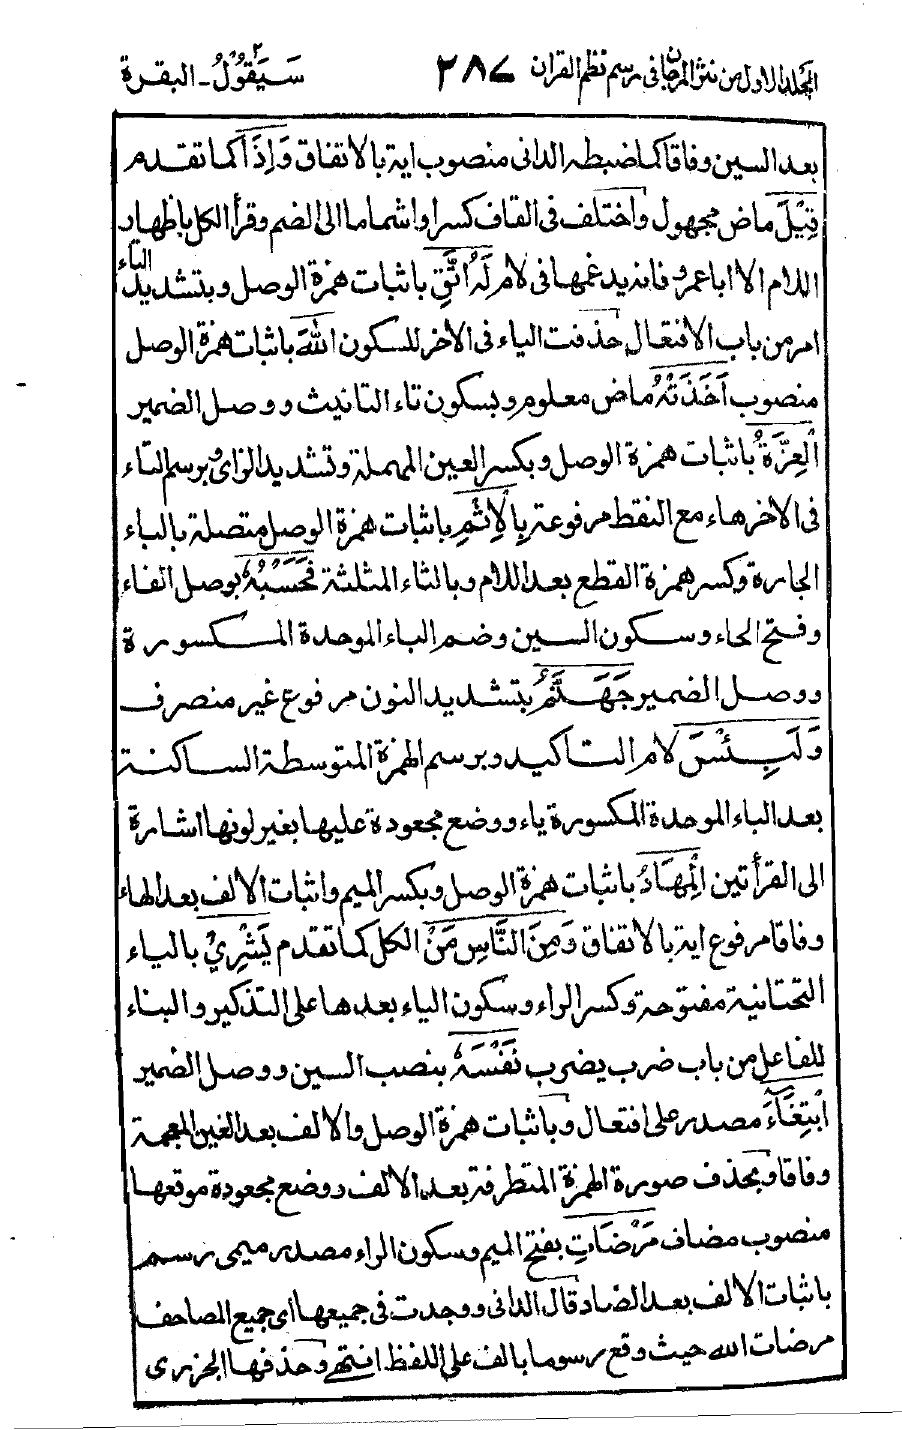 المجلد الاول من نثر المرجان فى رسم نظم القران ٢٨٧ سَيَقُوْلُ ٢ - البقرة
بعد السين وفاقا كما ضبطه الدانى منصوب اية بالاتفاق وَاِذَا كما تقدم
قِيْلَ ماض مجهول واختلف فى القاف كسرا واشماما الى الضم وقرأ الكل باظهار
اللام الا ابا عمرو فانه يدغمها فى لام لَهُ اتَّقِ باثبات همزة الوصل وبتشديد التاء
امر من باب الافتعال حذفت الياء فى الآخر للسكون اللهَ باثبات همزة الوصل
منصوب اَخَذَتْهُ ماض معلوم وبسكون تاء التانيث ووصل الضمير
الْعِزَّةُ باثبات همزة الوصل وبكسر العين المهملة وتشديد الزاى وبرسم التاء
فى الآخر هاء مع النقط مرفوعة بِالْاِثْمِ باثبات همزة الوصل متصلة بالباء
الجارة وكسر همزة القطع بعد اللام وبالثاء المثلثة فَحَسْبُهٗ بوصل الفاء
وفتح الحاء وسكون السين وضم الباء الموحدة المكسورة
ووصل الضمير جَهَنَّمُ بتشديد النون مرفوع غير منصرف
وَلَبِئْسَ لام التاكيد وبرسم الهمزة المتوسطة الساكنة
بعد الباء الموحدة المكسورة ياء ووضع مجعودة عليها بغير لونها اشارة
الى القرأتين الْمِهَادُ باثبات همزة الوصل وبكسر الميم واثبات الالف بعد الهاء
وفاقا مرفوع اية بالاتفاق وَمِنَ النَّاسِ مَنْ الكل كما تقدم يَشْرِيْ بالياء
التحتانية مفتوحة وكسر الراء وسكون الياء بعدها على التذكير والبناء
للفاعل من باب ضرب يضرب نَفْسَهٗ بنصب السين ووصل الضمير
ابْتِغَآءَ مصدر على افتعال وباثبات همزة الوصل والالف بعد الغين المعجمة
وفاقا وبحذف صورة الهمزة المتطرفة بعد الالف ووضع مجعودة موقعها
منصوب مضاف مَرْضَاتِ بفتح الميم وسكون الراء مصدر ميمى رسم
باثبات الالف بعد الضاد قال الدانى ووجدت فى جميعها اى جميع المصاحف
مرضات الله حيث وقع مرسوما بالف على اللفظ انتهى وحذفها الجزرى